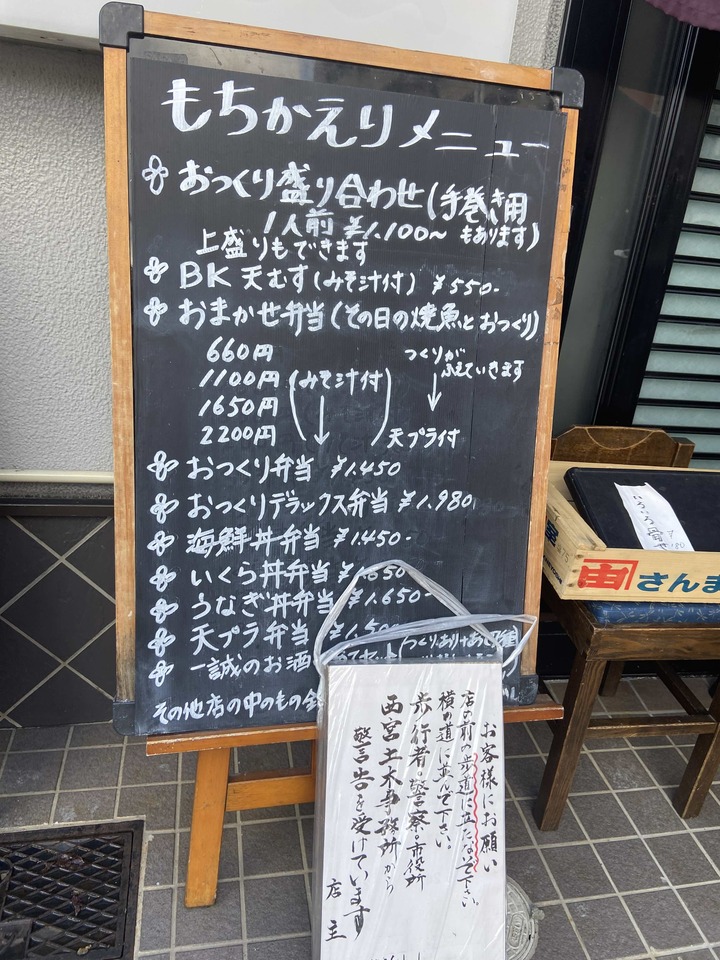 もちかえりメニュー
おつくり盛り合わせ(手巻き用もあります)
1人前 ¥1.100~
上盛りもできます
BK 天むす(みそ汁付) ¥550-
おまかせ弁当(その日の焼魚とおつくり)
660円
1100円
1650円
2200円
(みそ汁付)
つくりが
ふえていきます
天プラ付
おつくり弁当 ¥1.450
おつくりデラックス弁当 ¥1.980
海鮮丼弁当 ¥1.450-
いくら丼弁当
うなぎ丼弁当 ¥1.650-
天プラ弁当
一誠のお酒
その他店の中のもの全
さんま
お客様にお願い
店の前の歩道に立たないで下さい
横の道に並んで下さい。
歩行者。警察。市役所
西宮土木事務所から
警告を受けています
店主